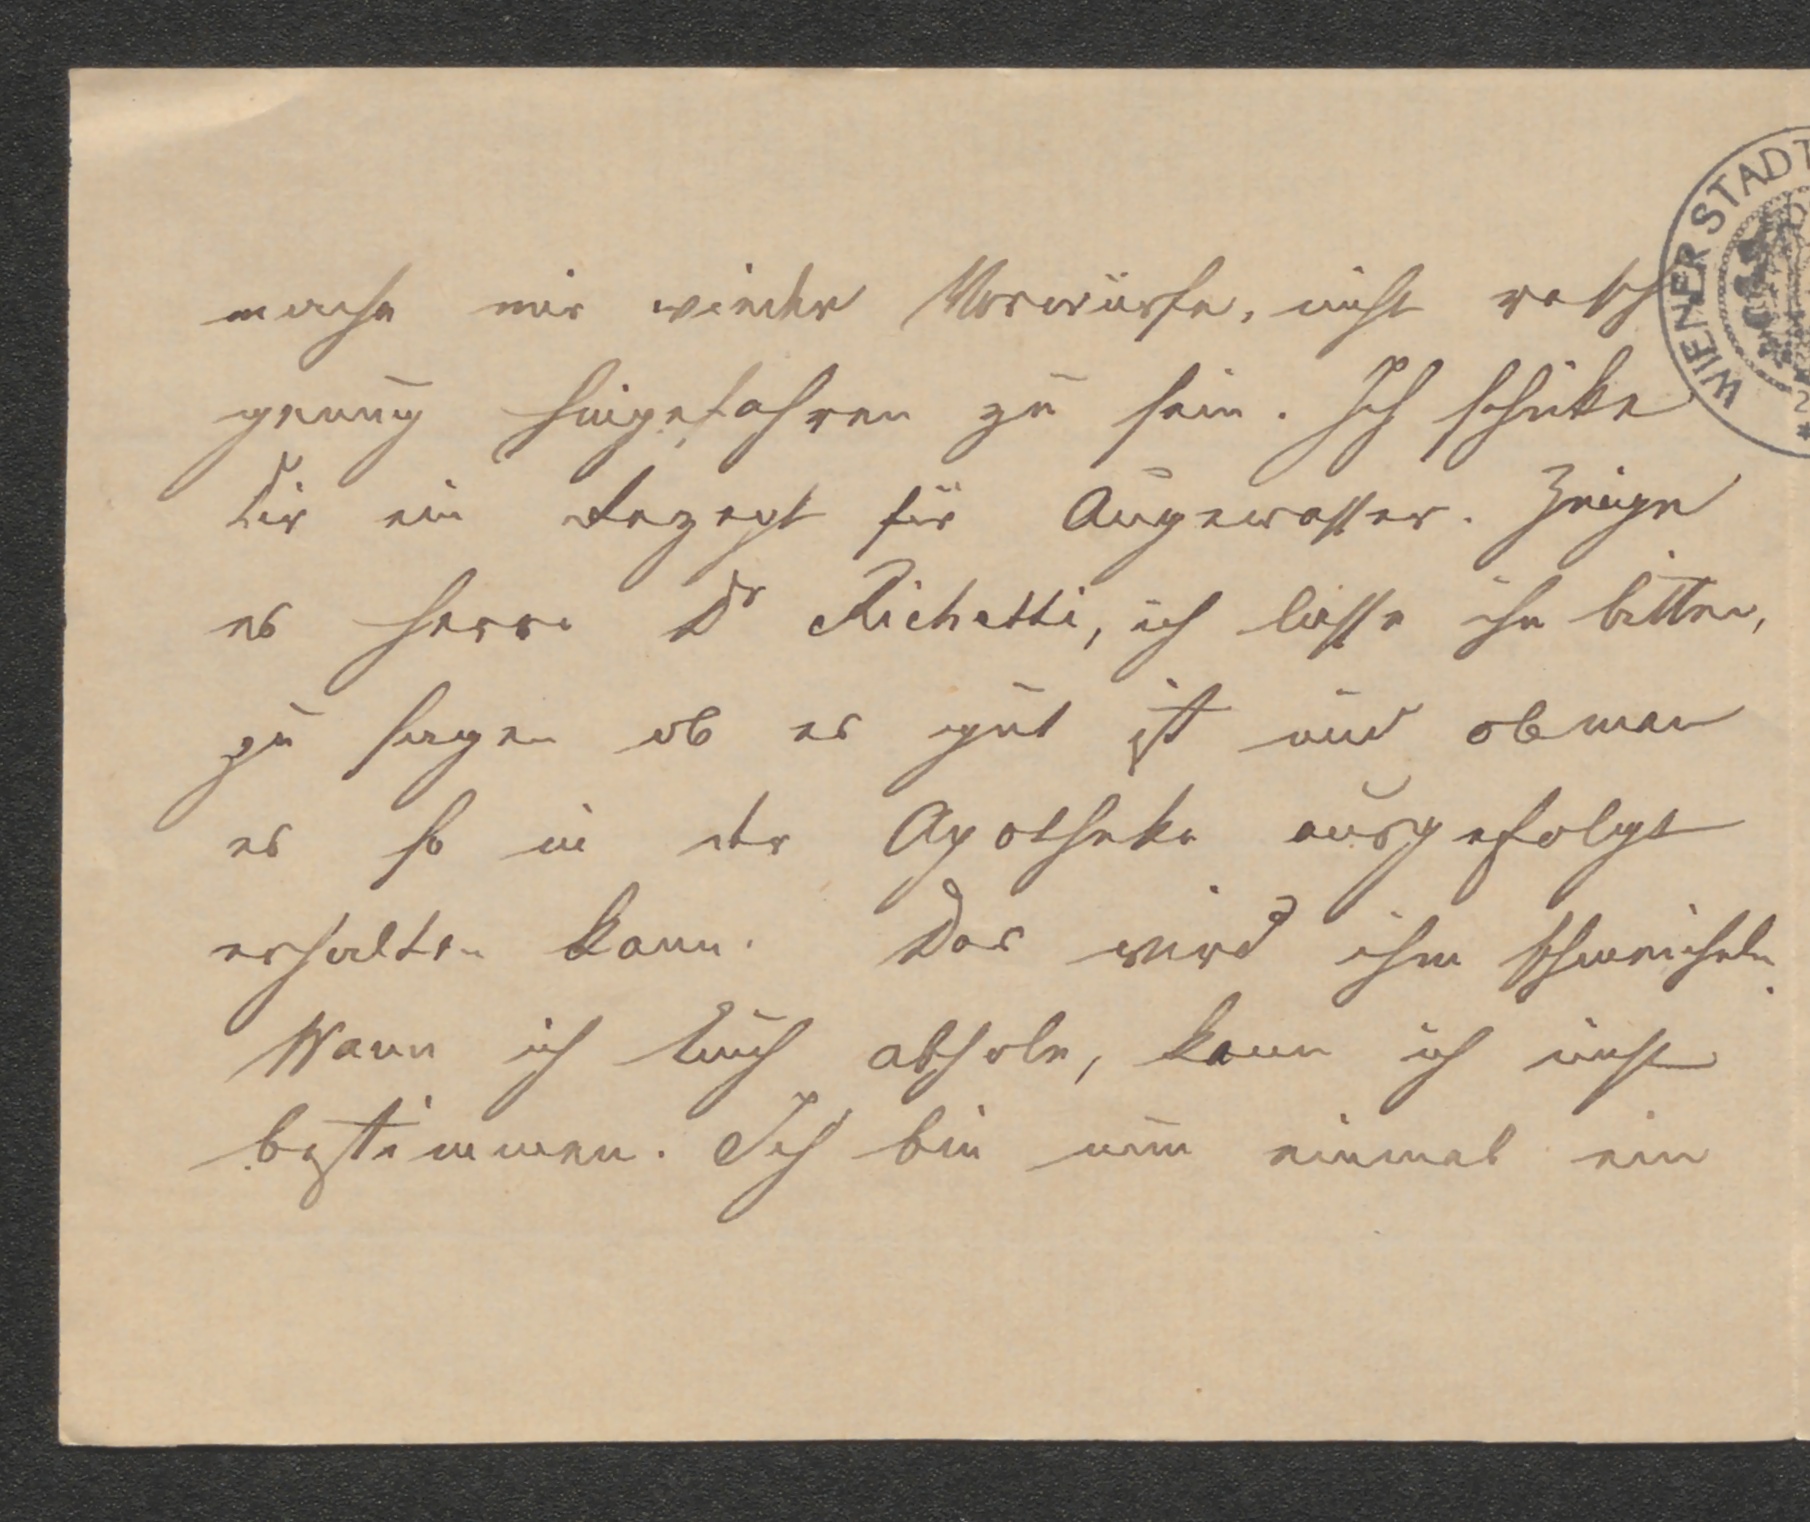 mache mir wieder Vorwürfe, nicht rasch
genug hingefahren zu sein. Ich schicke
Dir ein Rezept für Augewasser. Zeige
es Herrn Dr Richetti, ich lasse ihn bitten,
zu sagen ob es gut ist und ob man
es so in der Apotheke ausgefolgt
erhalten kann. Das wird ihm schmeicheln.
Wann ich Euch abhole, kann ich nicht
bestimmen. Ich bin nun einmal ein
WIENER STADT